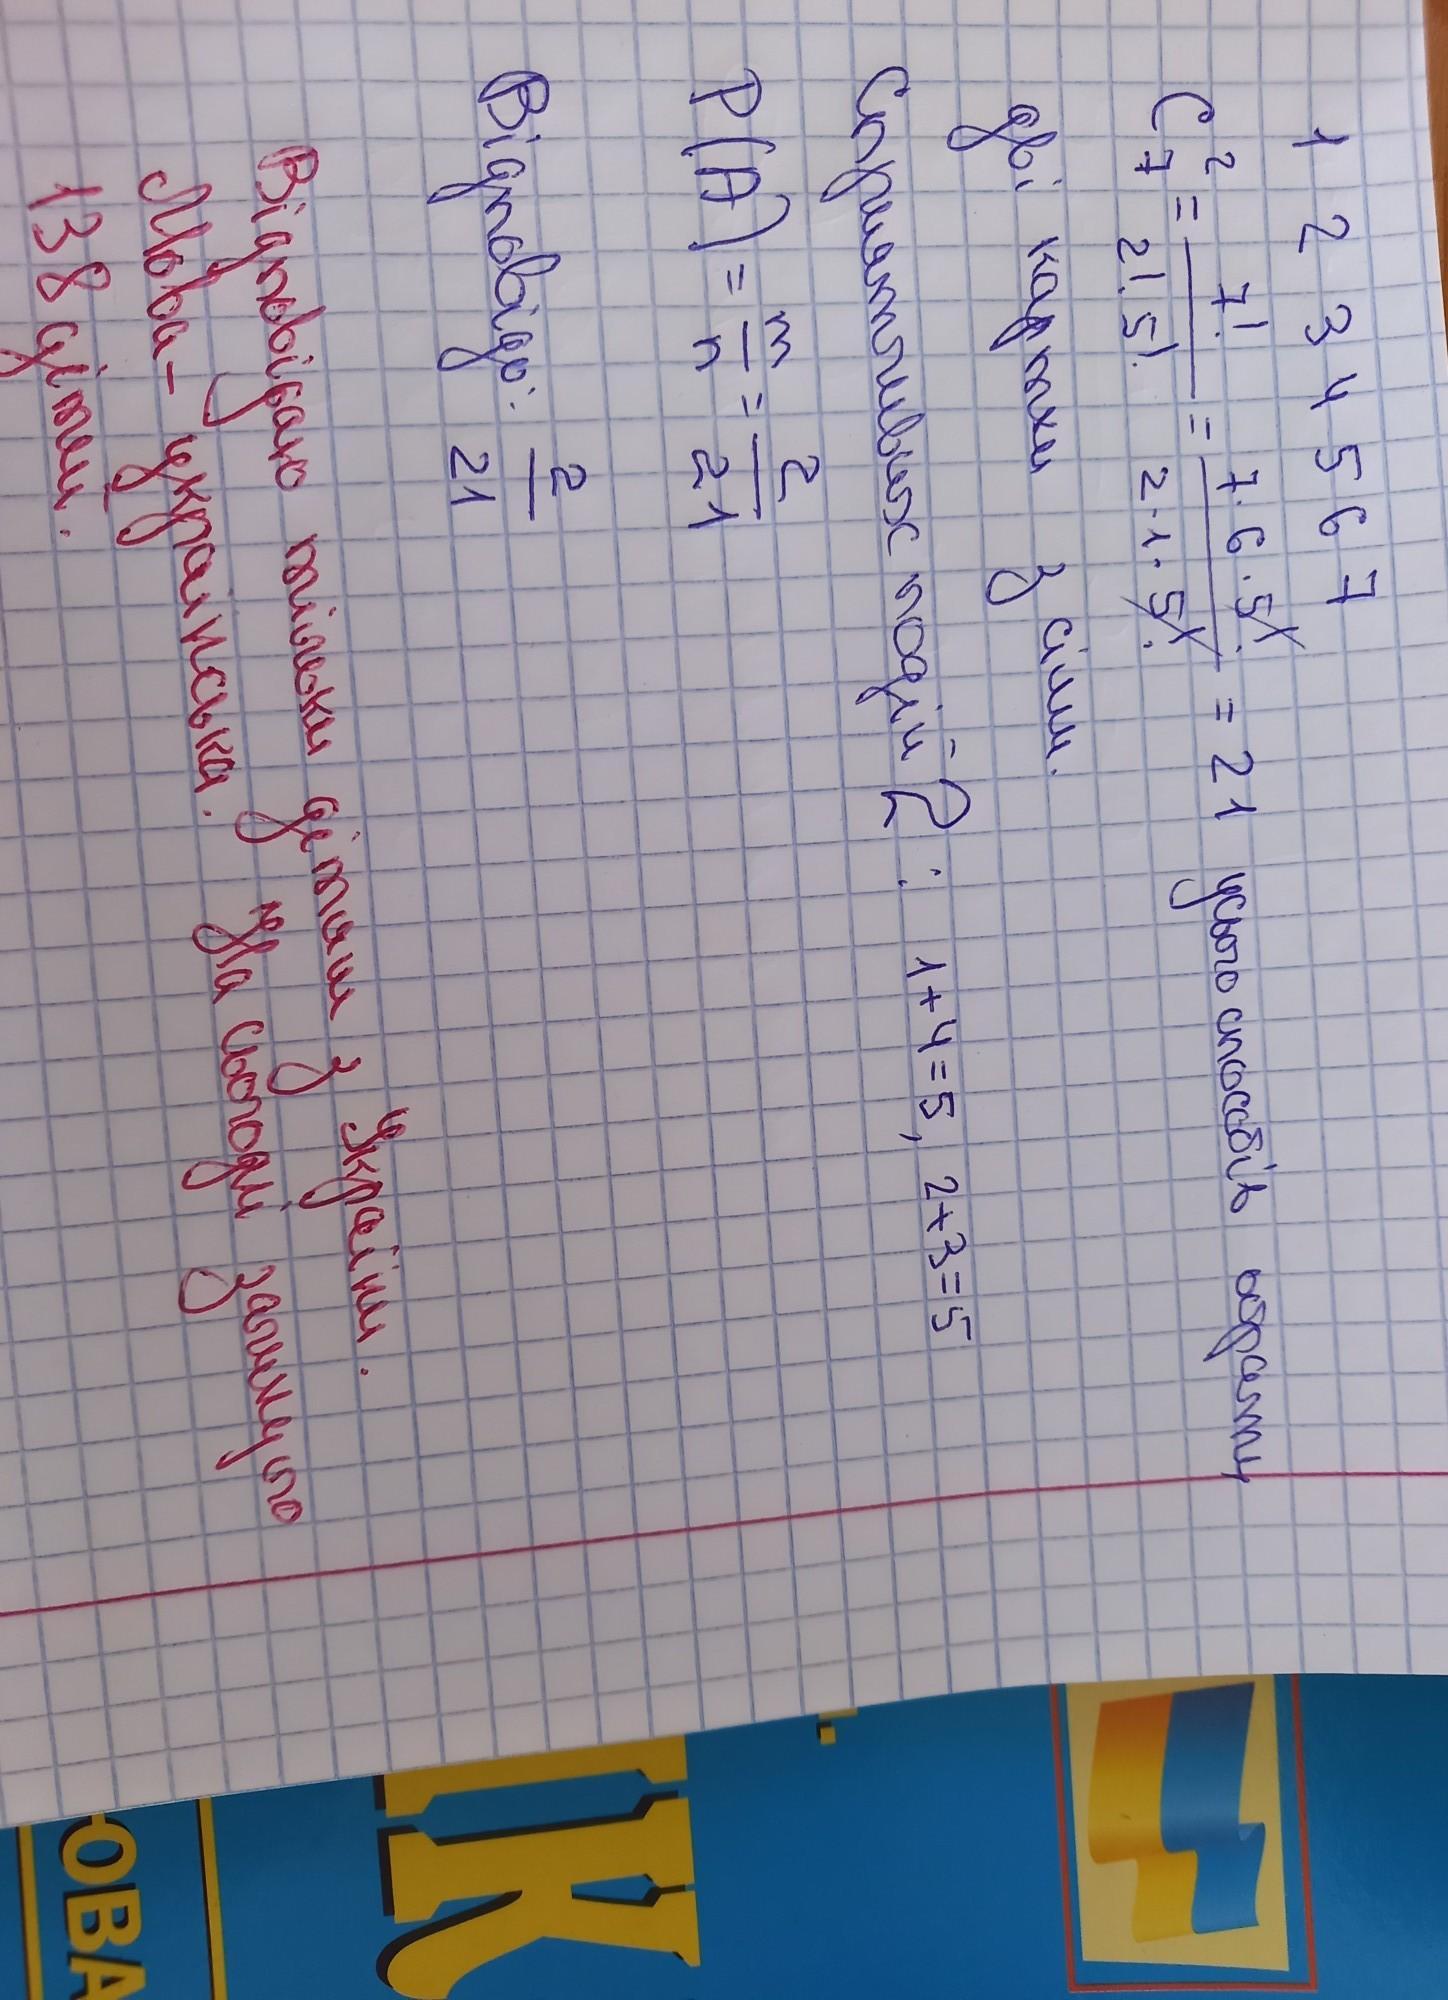 1 2 3 4 5 6 7
C₇² = 7!/2!·5! = 7·6·5!/2·1·5! = 21 усього способів обрати
дві картки з сіми.
Сприятливих подій 2 : 1+4=5, 2+3=5
P(A) = m/n = 2/21
Відповідь: 2/21
Відповідаю тільки дітям з України.
Мова - українська. На сьогодні залишую
138 діти.
ІК
ОВА